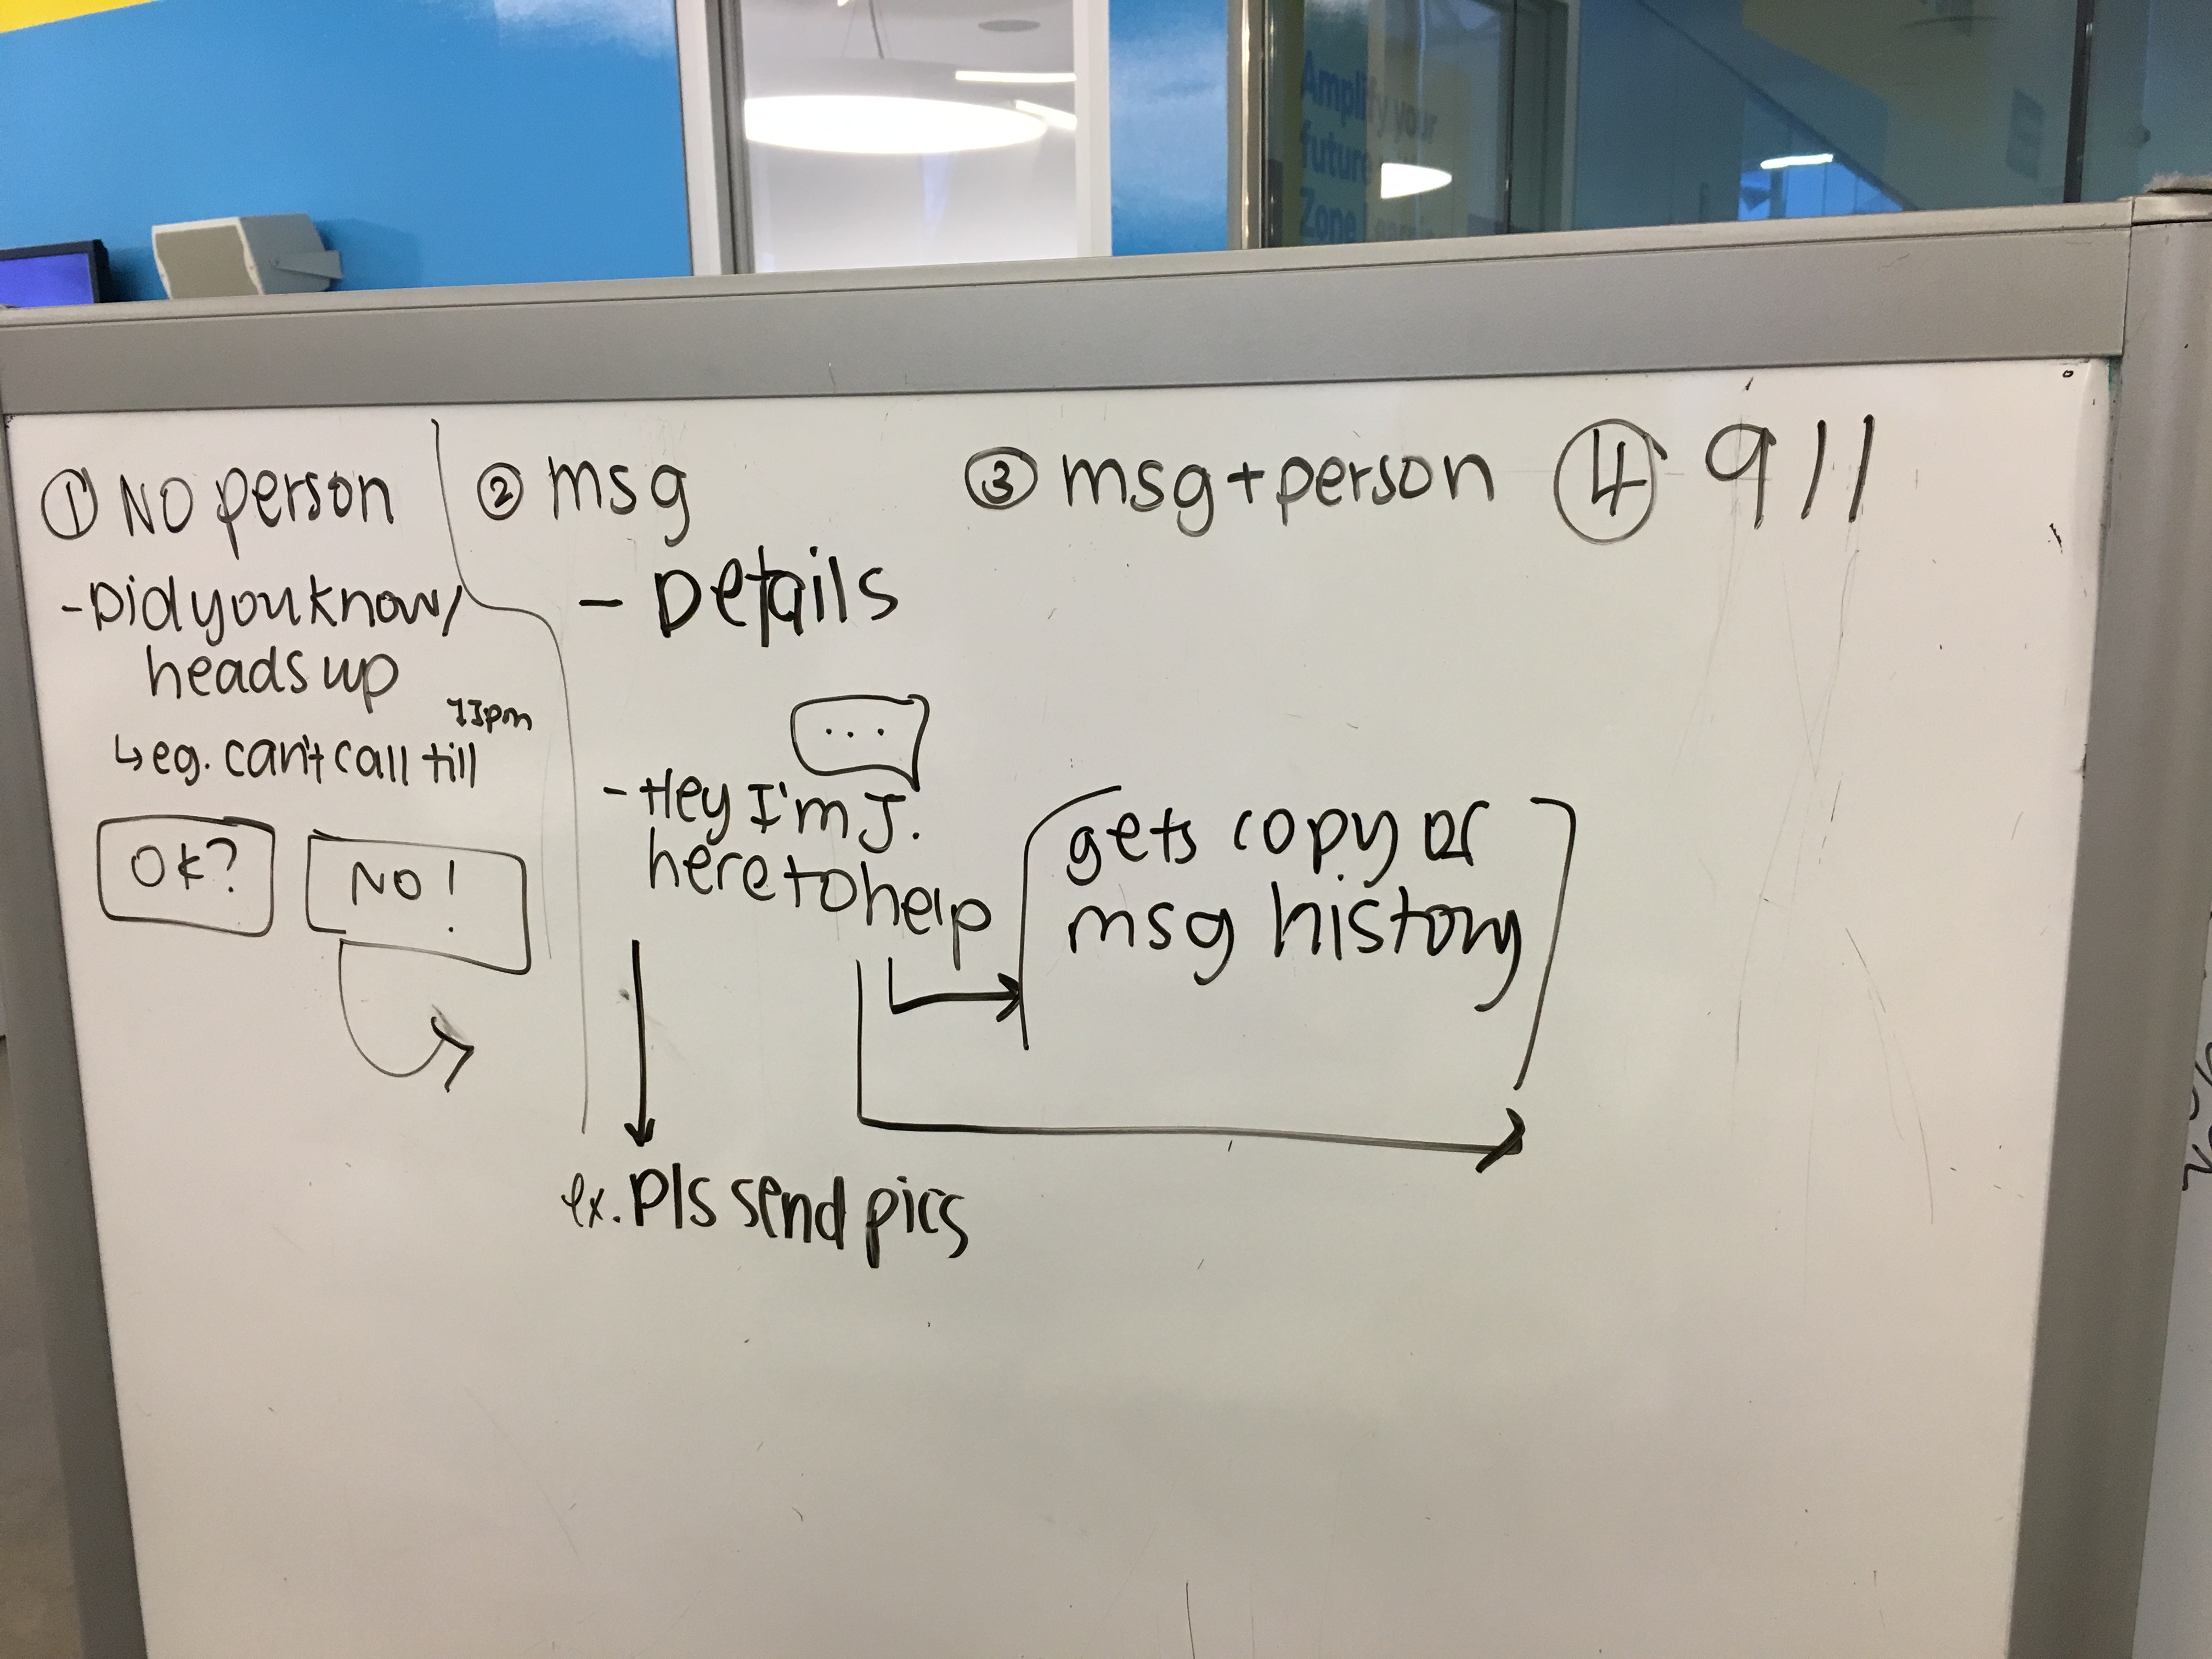 Amplify your
future
Zone
① NO person
- Did you know/
heads up
↳ eg. can't call till
OK?
NO!
② msg
- Details
...
- Hey I'm J.
here to help
ex. Pls send pics
③ msg + person
gets copy or
msg history
④ 911